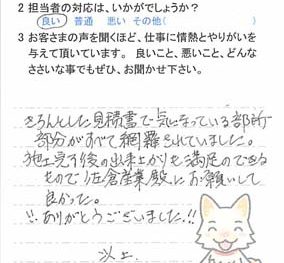 2 担当者の対応は、いかがでしょうか？
良い 普通 悪い その他( )
3 お客さまの声を聞くほど、仕事に情熱とやりがいを
与えて頂いています。 良いこと、悪いこと、どんな
ささいな事でもぜひ、お聞かせ下さい。
きちんとした見積書で気になっている部所
部分がすべて網羅されていました。
施工完了後の出来上がりも満足のできる
もので佐倉産業殿にお願いして
良かった。
!! ありがとうございました!!
以上